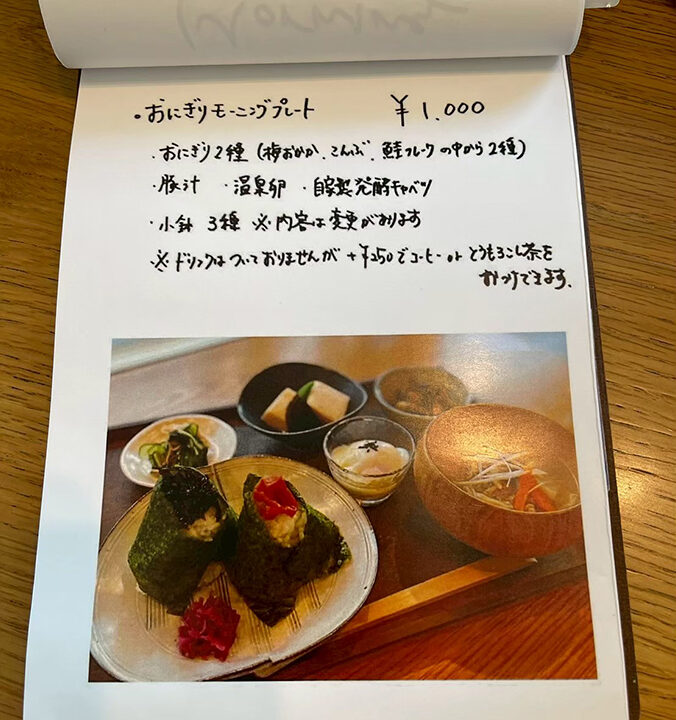 ・おにぎりモーニングプレート ¥1.000
・おにぎり2種(梅おかか、こんぶ、鮭フレークの中から2種)
・豚汁 ・温泉卵 ・自家製発酵キャベツ
・小鉢 3種 ※内容は変更があります
※ドリンクはついておりませんが +¥250でコーヒー or とうもろこし茶を
おつけできます。